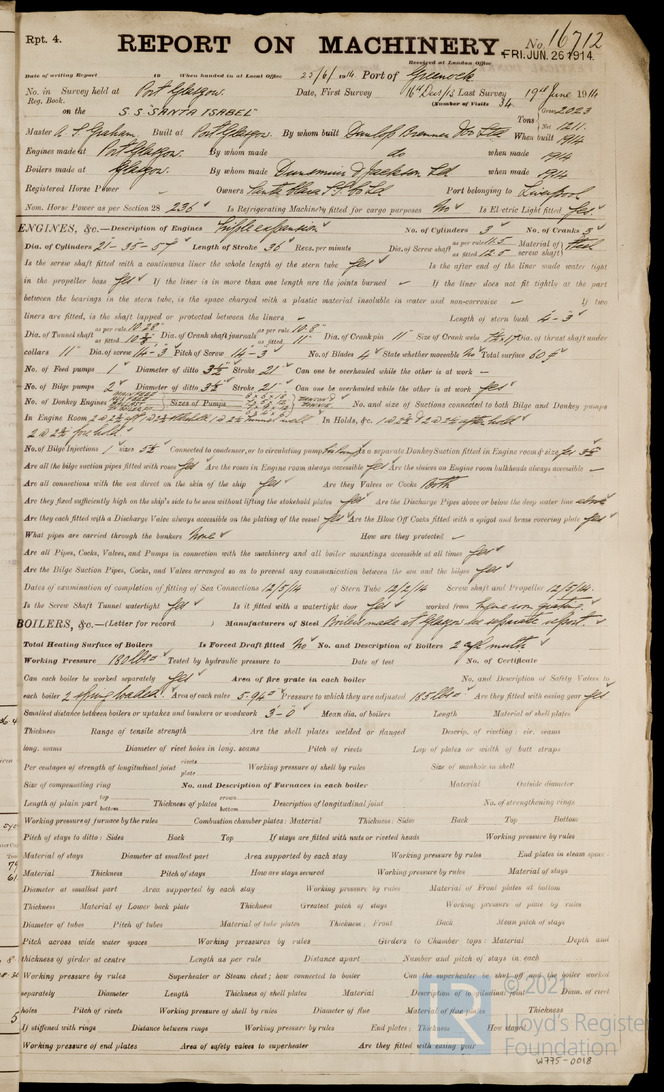 Rpt. 4.
REPORT ON MACHINERY.
No. 16712
Received at London Office
FRI. JUN. 26 1914
Date of writing Report 19 When handed in at Local Office 25/6/1914 Port of Greenock
No. in Survey held at Port Glasgow. Date, First Survey 16th Dec/13 Last Survey 19th June 1914
Reg. Book. (Number of Visits 34
on the S.S. "SANTA ISABEL" Tons Gross 2023 Net 1211
Master A. S. Graham. Built at Port Glasgow. By whom built Dunlop Bremner & Co Ltd When built 1914
Engines made at Port Glasgow. By whom made do when made 1914
Boilers made at Glasgow. By whom made Dunsmuir & Jackson Ld when made 1914
Registered Horse Power Owners Santa Clara S.S. Co Ld. Port belonging to Liverpool
Nom. Horse Power as per Section 28 236 Is Refrigerating Machinery fitted for cargo purposes No Is Electric Light fitted Yes.
ENGINES, &c.—Description of Engines Triple expansion No. of Cylinders 3 No. of Cranks 3
Dia. of Cylinders 21-35-57 Length of Stroke 36 Revs. per minute Dia. of Screw shaft as per rule as fitted Material of screw shaft steel
Is the screw shaft fitted with a continuous liner the whole length of the stern tube Yes Is the after end of the liner made water tight
in the propeller boss Yes If the liner is in more than one length are the joints burned — If the liner does not fit tightly at the part
between the bearings in the stern tube, is the space charged with a plastic material insoluble in water and non-corrosive — If two
liners are fitted, is the shaft lapped or protected between the liners — Length of stern bush 4-3
Dia. of Tunnel shaft as per rule 10.28 as fitted Dia. of Crank shaft journals as per rule 10.8 as fitted 11 Dia. of Crank pin 11 Size of Crank webs Dia. of thrust shaft under
collars 11 Dia. of screw 14-3 Pitch of Screw 14-3 No. of Blades 4 State whether moveable No Total surface 60
No. of Feed pumps 1 Diameter of ditto 3½ Stroke 21 Can one be overhauled while the other is at work —
No. of Bilge pumps 2 Diameter of ditto 3½ Stroke 21 Can one be overhauled while the other is at work Yes
No. of Donkey Engines Sizes of Pumps No. and size of Suctions connected to both Bilge and Donkey pumps
In Engine Room In Holds, &c.
No. of Bilge Injections 1 sizes 5½ Connected to condenser, or to circulating pump Is a separate Donkey Suction fitted in Engine room & size Yes 3½
Are all the bilge suction pipes fitted with roses Yes Are the roses in Engine room always accessible Yes Are the sluices on Engine room bulkheads always accessible —
Are all connections with the sea direct on the skin of the ship Yes Are they Valves or Cocks Both
Are they fixed sufficiently high on the ship's side to be seen without lifting the stokehold plates Yes Are the Discharge Pipes above or below the deep water line above
Are they each fitted with a Discharge Valve always accessible on the plating of the vessel Yes Are the Blow Off Cocks fitted with a spigot and brass covering plate Yes
What pipes are carried through the bunkers None How are they protected —
Are all Pipes, Cocks, Valves, and Pumps in connection with the machinery and all boiler mountings accessible at all times Yes
Are the Bilge Suction Pipes, Cocks, and Valves arranged so as to prevent any communication between the sea and the bilges Yes
Dates of examination of completion of fitting of Sea Connections 12/5/14 of Stern Tube 12/2/14 Screw shaft and Propeller 12/5/14
Is the Screw Shaft Tunnel watertight Yes Is it fitted with a watertight door Yes worked from Engine room grating.
BOILERS, &c.—(Letter for record ) Manufacturers of Steel Boilers made at Glasgow see separate report.
Total Heating Surface of Boilers Is Forced Draft fitted No No. and Description of Boilers 2
Working Pressure 180 lbs Tested by hydraulic pressure to Date of test No. of Certificate
Can each boiler be worked separately Yes Area of fire grate in each boiler No. and Description of Safety Valves to
each boiler 2 spring loaded. Area of each valve 5.940 Pressure to which they are adjusted 185 lbs Are they fitted with easing gear Yes
Smallest distance between boilers or uptakes and bunkers or woodwork 3-0 Mean dia. of boilers Length Material of shell plates
Thickness Range of tensile strength Are the shell plates welded or flanged Descrip. of riveting: cir. seams
long. seams Diameter of rivet holes in long. seams Pitch of rivets Lap of plates or width of butt straps
Per centages of strength of longitudinal joint rivets plate Working pressure of shell by rules Size of manhole in shell
Size of compensating ring No. and Description of Furnaces in each boiler Material Outside diameter
Length of plain part top bottom Thickness of plates crown bottom Description of longitudinal joint No. of strengthening rings
Working pressure of furnace by the rules Combustion chamber plates: Material Thickness: Sides Back Top Bottom
Pitch of stays to ditto: Sides Back Top If stays are fitted with nuts or riveted heads Working pressure by rules
Material of stays Diameter at smallest part Area supported by each stay Working pressure by rules End plates in steam space:
Material Thickness Pitch of stays How are stays secured Working pressure by rules Material of stays
Diameter at smallest part Area supported by each stay Working pressure by rules Material of Front plates at bottom
Thickness Material of Lower back plate Thickness Greatest pitch of stays Working pressure of plate by rules
Diameter of tubes Pitch of tubes Material of tube plates Thickness: Front Back Mean pitch of stays
Pitch across wide water spaces Working pressures by rules Girders to Chamber tops: Material Depth and
thickness of girder at centre Length as per rule Distance apart Number and pitch of stays in each
Working pressure by rules Superheater or Steam chest; how connected to boiler Can the superheater be shut off and the boiler worked
separately Diameter Length Thickness of shell plates Material Description of longitudinal joint Diam. of rivet
holes Pitch of rivets Working pressure of shell by rules Diameter of flue Material of flue plates Thickness
If stiffened with rings Distance between rings Working pressure by rules End plates: Thickness How stayed
Working pressure of end plates Area of safety valves to superheater Are they fitted with easing gear
© 2021
Lloyd's Register
Foundation
W775-0018